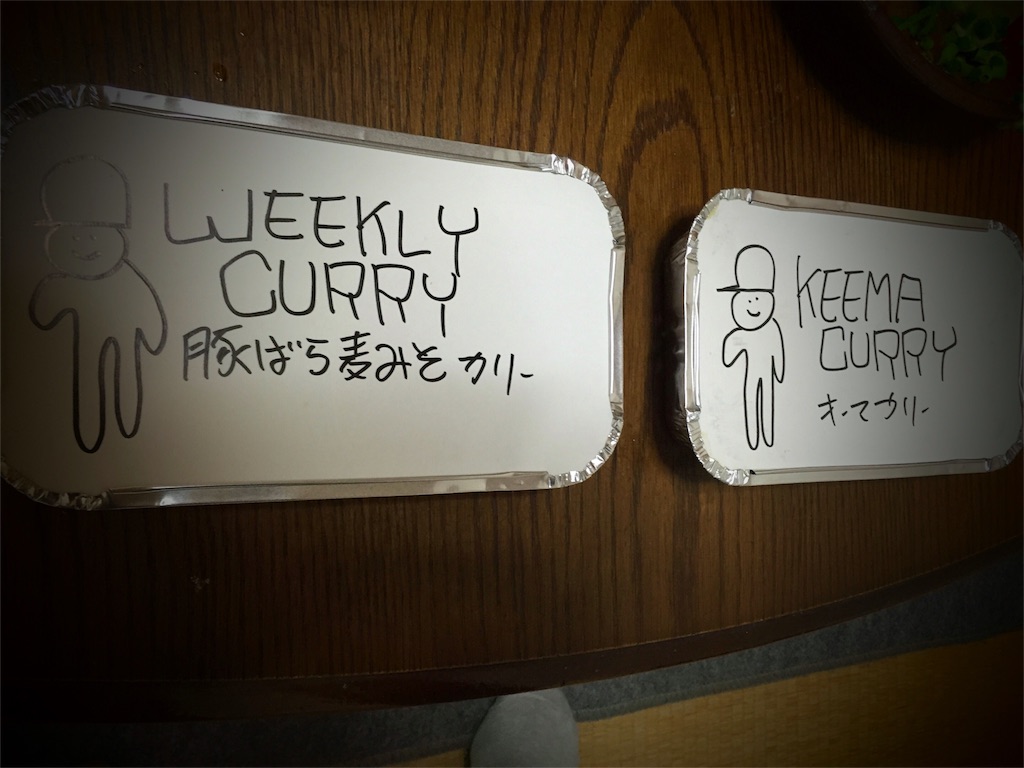 WEEKLY
CURRY
豚ばら麦みそカリー
KEEMA
CURRY
キーマカリー